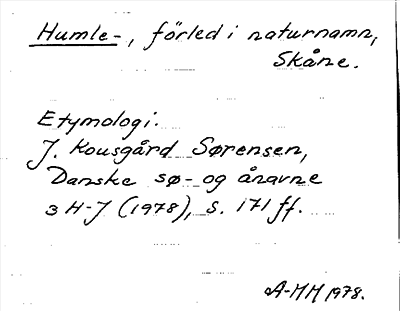 Humle-, förled i naturnamn,
Skåne.
Etymologi.
J. Kousgård Sørensen,
Danske sø- og ånavne
3 H-J (1978), s. 171 ff.
A-MH 1978.